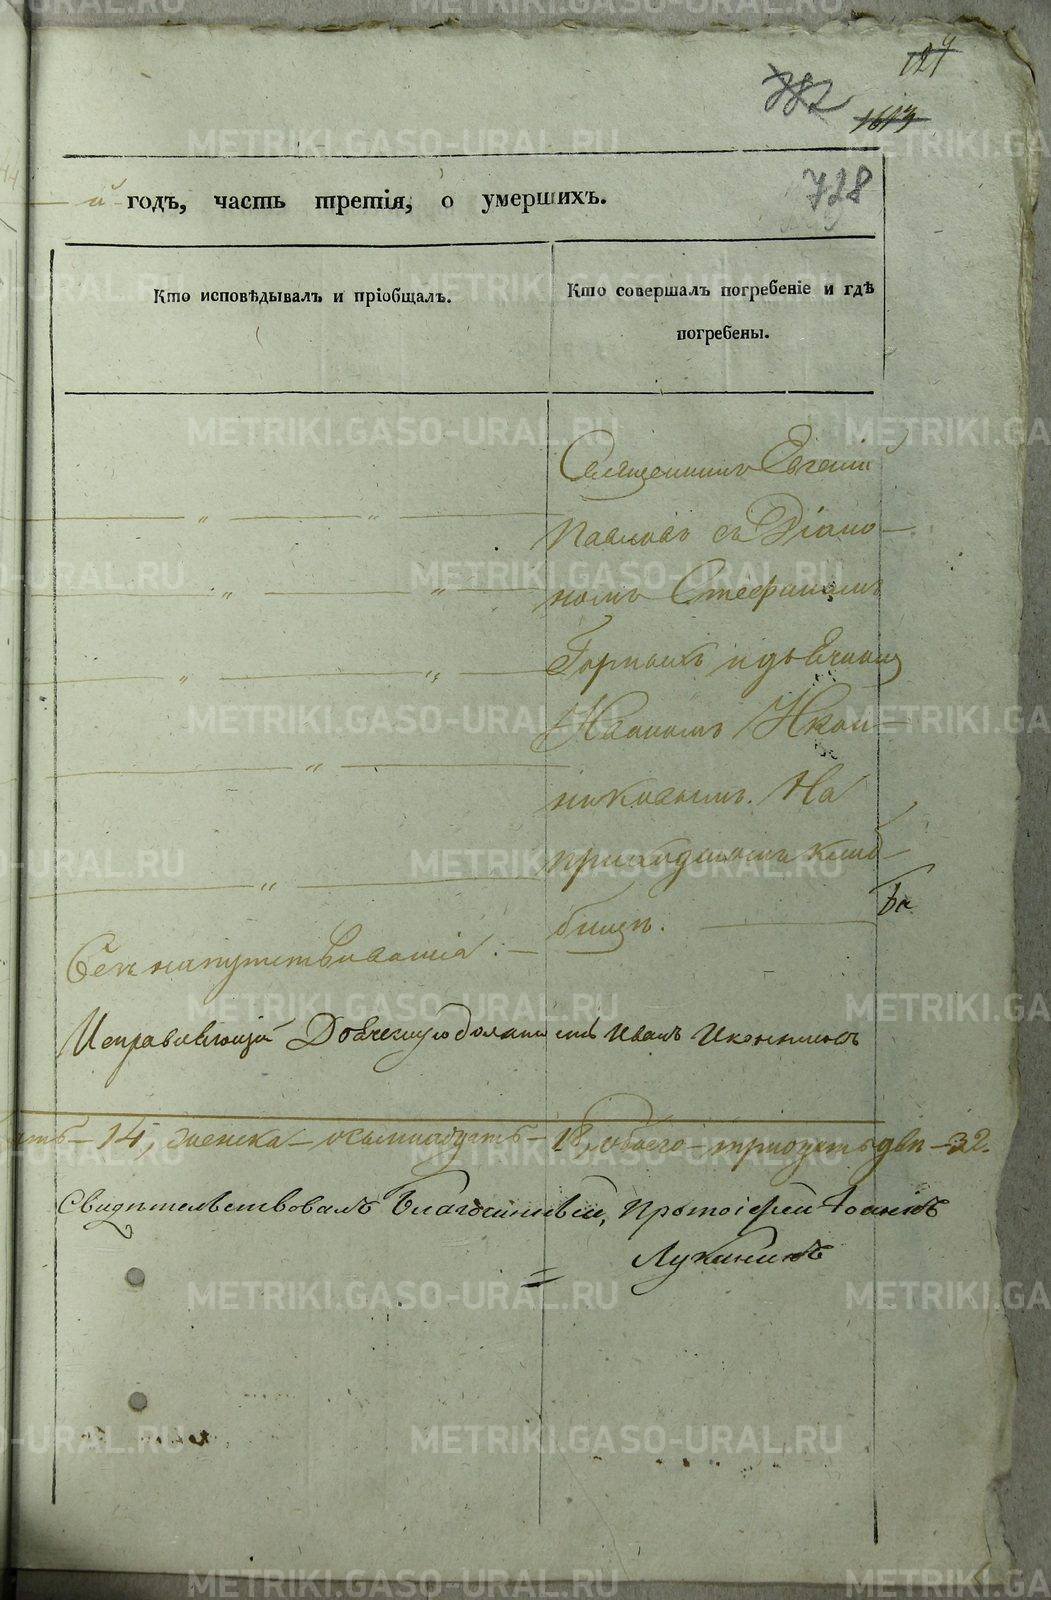 124
782
1613
728
й годъ, часть третія, о умершихъ.
Кто исповѣдывалъ и пріобщалъ.
Кто совершалъ погребеніе и гдѣ
погребены.
Священникъ Евгеній
Павловъ съ Діако-
номъ Стефаномъ
и дьячкомъ
Иваномъ Икон-
никовымъ. На
приходскомъ клад
бищѣ.
Безъ напутствованія.
Исправляющій Дьяческую должность Иванъ Иконниковъ
14, женска осьмнадцать - 18, обоего - тридцать два - 32.
Свидѣтельствовалъ Благочинный, Протоіерей Іоаннъ
Луканинъ
METRIKI.GASO-URAL.RU